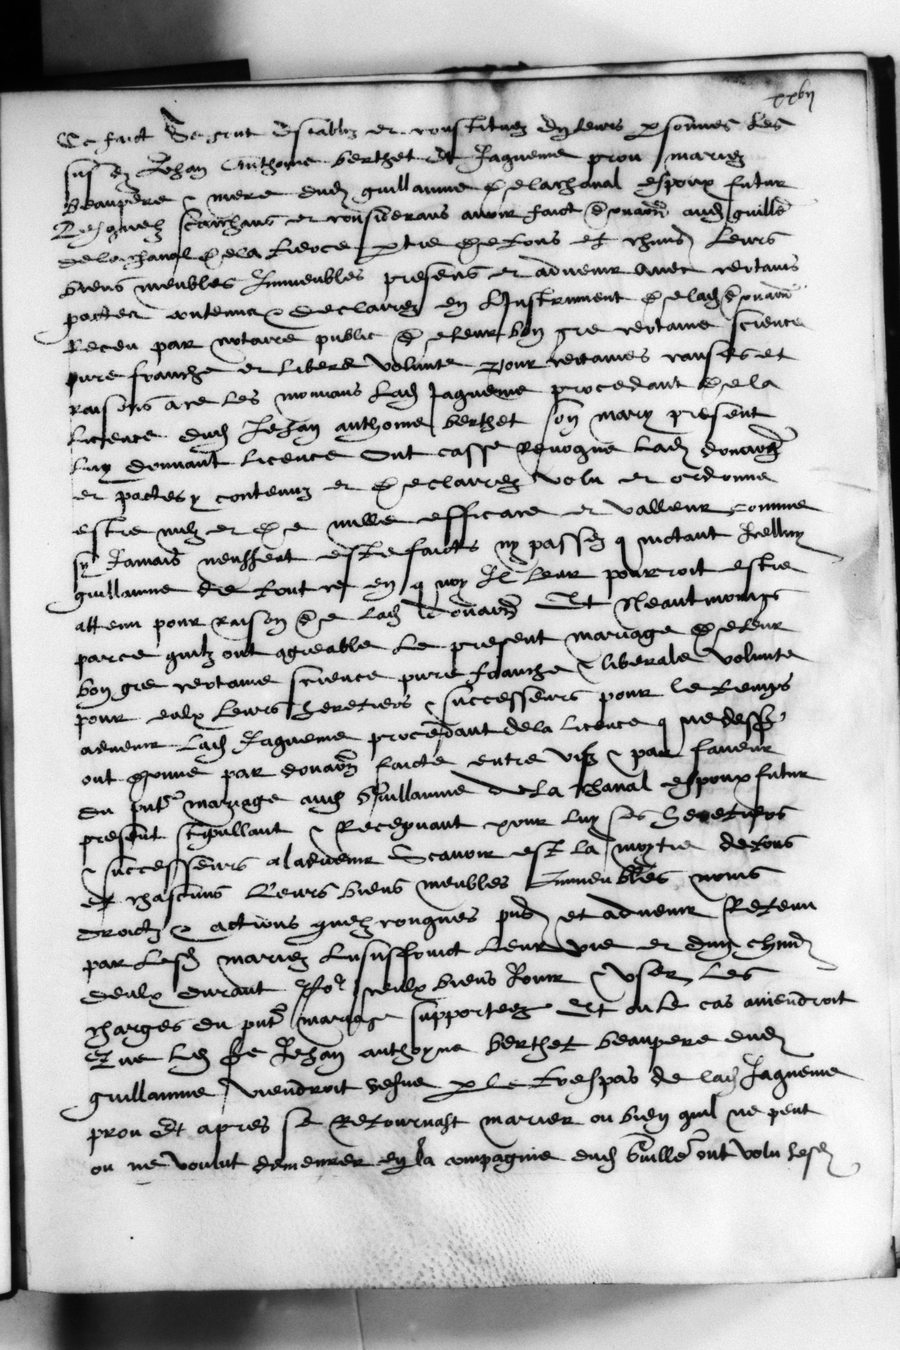 xxvij
Ce faict Se sont establiz et constituez en leurs personnes les
susd Jehan Anthoine Berthet et Jaqueme prou mariez
beaupere & mere dud guillaume de lachanal espoux futur
Lesquelz saichans et considerans avoir faict donaon aud guille
de lachanal de la tierce partie de tous et chascuns leurs
biens meubles Immeubles presens et advenir avec certains
pactes contenuz & declairez en Linstrument de lad donaon
Receu par notaire public de leur bon gre certaine science
pure franche et libere volunte pour certaines causes et
raisons a ce les mouvans Lad Jaqueme procedant de la
licence dud Jehan anthoine berthet son mary present
luy donnant licence Ont casse Revoque Lad donaon
et pactes y contenuz et declairez volu et ordonne
estre nulz et de nulle efficace et valleur comme
sy Jamais neussent este faicts ny passez q notant Icelluy
guillaume de tout ce en quoy Il leur pourroit estre
attenu pour raison de lad donaon Et Neantmoings
parce quilz ont agreable le present mariage de leur
bon gre certaine science pure franche & liberale volunte
pour eulx leurs heretiers & successeurs pour le temps
advenir Lad Jaqueme procedant de la licence q dessus
ont donne par donaon faicte entre vifz & par faveur
du pnt mariage aud Guillaume de la chanal espoux futur
present stipullant & Recepvant pour luy ses heretiers
& successeurs a ladvenir Scavoir est La moytie de tous
et chascuns Leurs biens meubles Immeubles noms
droictz & actions quelzconques pns et advenir Retenu
par lesd mariez Lusuffruict leur vie et dung chacun
deulx durant Jceulx biens Jouir & User Les
charges du pnt mariage supportees Et ou le cas adviendroit
Que led Jehan anthoyne berthet beaupere dud
guillaume viendroit vefue par le trespas de lad Jaqueme
prou Et apres se Retournast marier ou bien quil ne peut
ou ne voulut demeurer en la compagnie dud Guille ont volu lesd